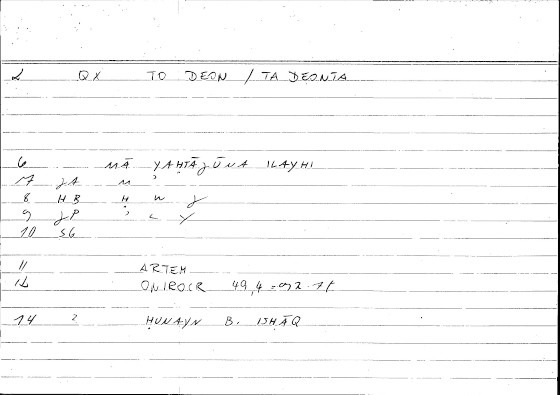 2 QX TO DEON / TA DEONTA
6 MĀ YAḤTĀJŪNA ILAYHI
7 JA M
8 HB Ḥ W J
9 JP ʾ L Y
10 SG
11 ARTEM
12 ONIROCR 49,4
14 2 ḤUNAYN B. ISḤĀQ